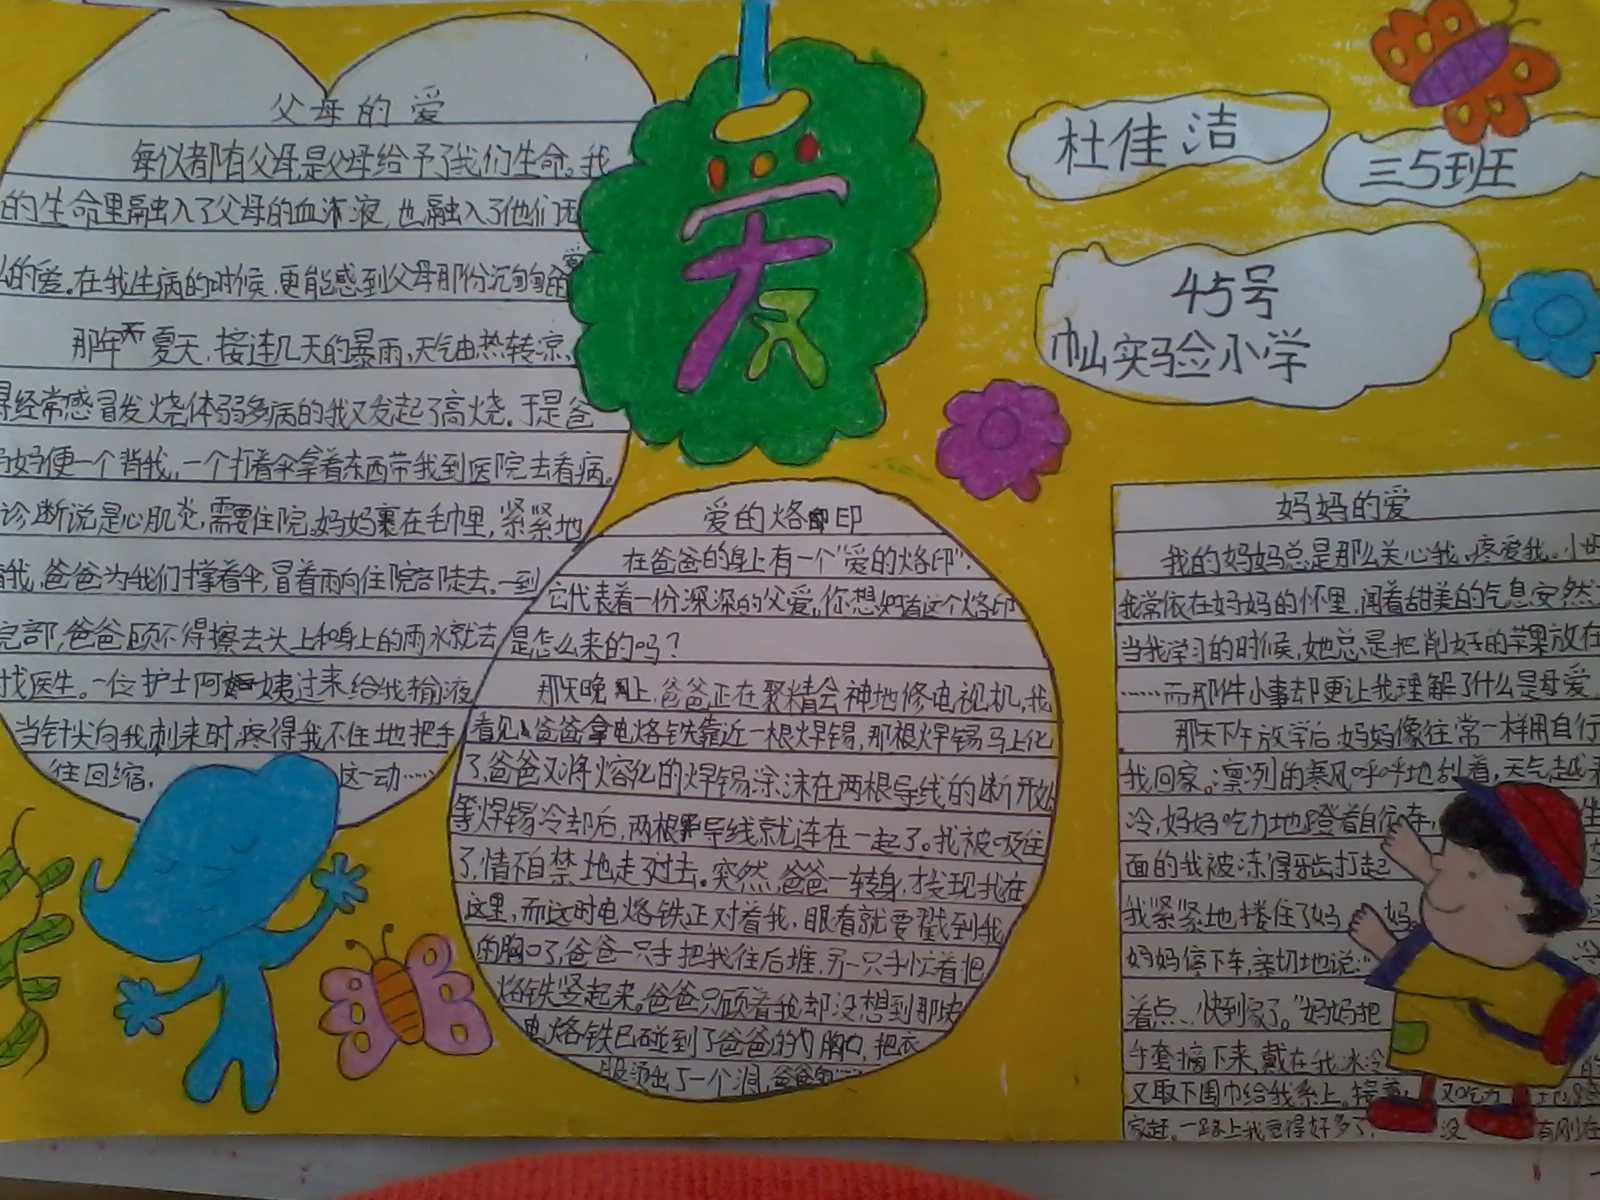 父母的爱
每似都有父母,是父母给予了我们生命。我
的生命里融入了父母的血液,也融入了他们无
的爱。在我生病的时候,更能感到父母那份沉甸甸的爱
那年夏天,接连几天的暴雨,天气由热转凉,
得经常感冒发烧体弱多病的我又发起了高烧。于是爸
妈妈便一个背我,一个打着伞拿着东西带我到医院去看病。
诊断说是心肌炎,需要住院。妈妈裹在毛巾里,紧紧地
着我,爸爸为我们撑着伞,冒着雨向住院部走去。一到
完部,爸爸顾不得擦去头上和身上的雨水就去
找医生。一位护士阿姨过来给我输液
当针尖向我刺来时,疼得我不住地把手
往回缩. 这一动……
爱
杜佳洁
三5班
45号
巾山实验小学
爱的烙印
在爸爸的身上有一个"爱的烙印",
它代表着一份深深的父爱。你想知道这个烙印
是怎么来的吗?
那天晚上,爸爸正在聚精会神地修电视机,我
看见爸爸拿电烙铁靠近一根焊锡,那根焊锡马上化
了,爸爸又将熔化的焊锡涂沫在两根导线的断开处
等焊锡冷却后,两根导线就连在一起了。我被吸住
了,情不自禁地走了过去。突然,爸爸一转身,才发现我在
这里,而这时电烙铁正对着我,眼看就要戳到我
的胸口了,爸爸一只手把我往后推,另一只手忙着把
烙铁竖起来。爸爸只顾着我却没想到那块
电烙铁已碰到了爸爸的胸口,把衣
服烫出了一个洞,爸爸的……
妈妈的爱
我的妈妈总是那么关心我、疼爱我。小时
我常依在妈妈的怀里,闻着甜美的气息安然
当我学习的时候,她总是把削好的苹果放在
……而那件小事却更让我理解了什么是母爱
那天下午放学后,妈妈像往常一样用自行
我回家。凛冽的寒风呼呼地刮着,天气越来
冷,妈妈吃力地蹬着自行车,
面的我被冻得牙齿打起
我紧紧地搂住了妈妈
妈妈停下车,亲切地说:"
着点……快到家了。"妈妈把
手套摘下来,戴在我冰冷
又取下围巾给我系上。接着, 又吃力
家赶。一路上我觉得好多了, 没 有刚在